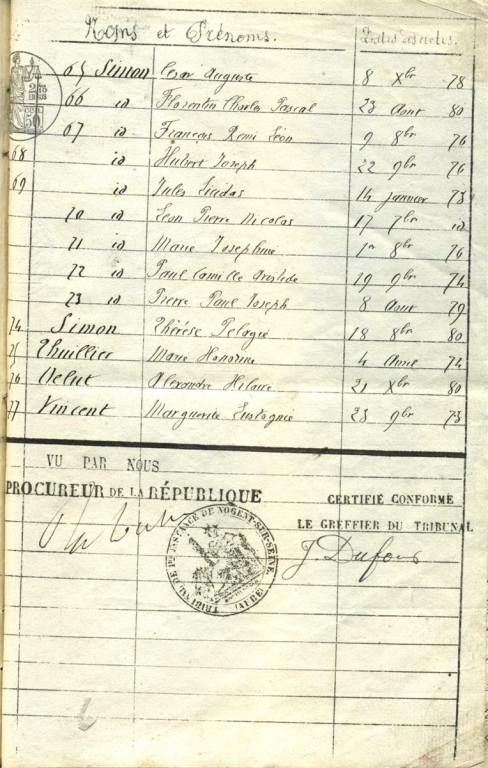 Noms et Prénoms. Dates des actes.
65 Simon César Auguste 8 Xbr 78
66 id Florentin Charles Pascal 23 Aout 80
67 id François Remi Léon 9 8br 76
68 id Hubert Joseph 22 9br 76
69 id Jules 14 janvier 73
70 id Léon Pierre Nicolas 17 7br id
71 id Marie Joséphine 1er 8br 76
72 id Paul Camille Aristide 19 9br 74
73 id Pierre Paul Joseph 8 Aout 79
74 Simon Thérèse Pélagie 18 8br 80
75 Thuillier Marie Honorine 4 Avril 74
76 Velut Alexandre Hilaire 21 Xbr 80
77 Vincent Marguerite Eustagnie 23 9br 73
VU PAR NOUS
PROCUREUR DE LA RÉPUBLIQUE
CERTIFIÉ CONFORME
LE GREFFIER DU TRIBUNAL
J. Dufour
TRIBUNAL DE PRE INSTANCE DE NOGENT-SUR-SEINE (AUBE)